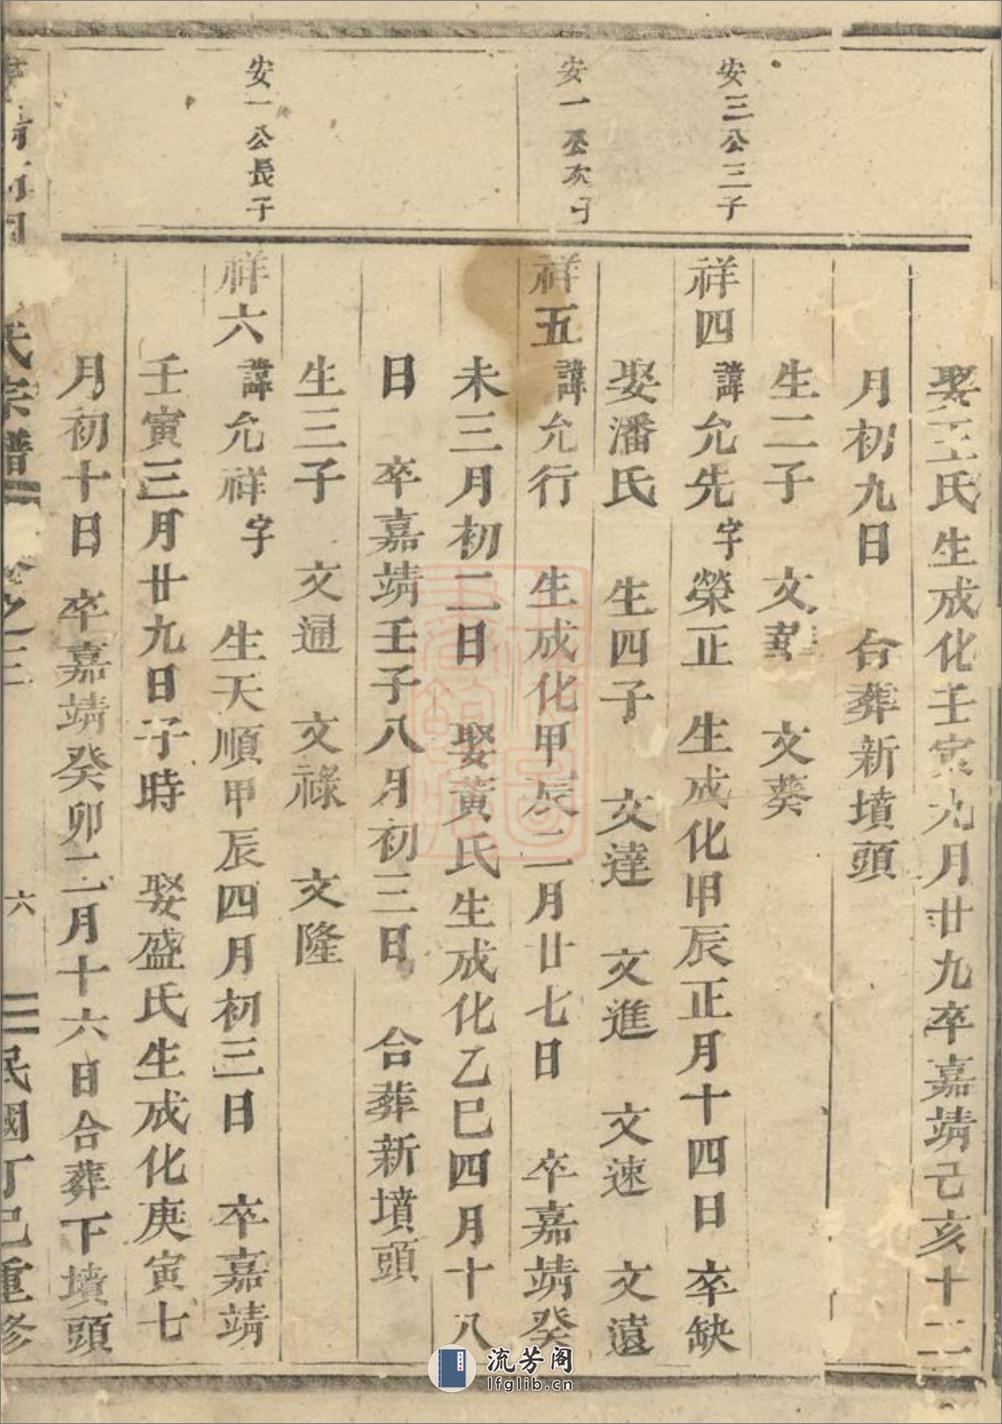 安三公三子
安一公次子
安一公長子
娶王氏生成化壬寅九月廿九卒嘉靖己亥十二
月初九日　合葬新墳頭
生二子　文　文葵
祥四諱允先字榮正　生成化甲辰正月十四日卒缺
娶潘氏　生四子　文達　文進　文速　文遠
祥五諱允行　生成化甲辰二月廿七日　卒嘉靖癸
未三月初二日　娶黃氏生成化乙巳四月十八
日　卒嘉靖壬子八月初三日　合葬新墳頭
生三子　文通　文祿　文隆
祥六諱允祥字　生天順甲辰四月初三日　卒嘉靖
壬寅三月廿九日子時　娶盛氏生成化庚寅七
月初十日　卒嘉靖癸卯二月十六日合葬下墳頭
氏宗譜　卷之三　六　民國丁巳重修
流芳阁
lfglib.cn